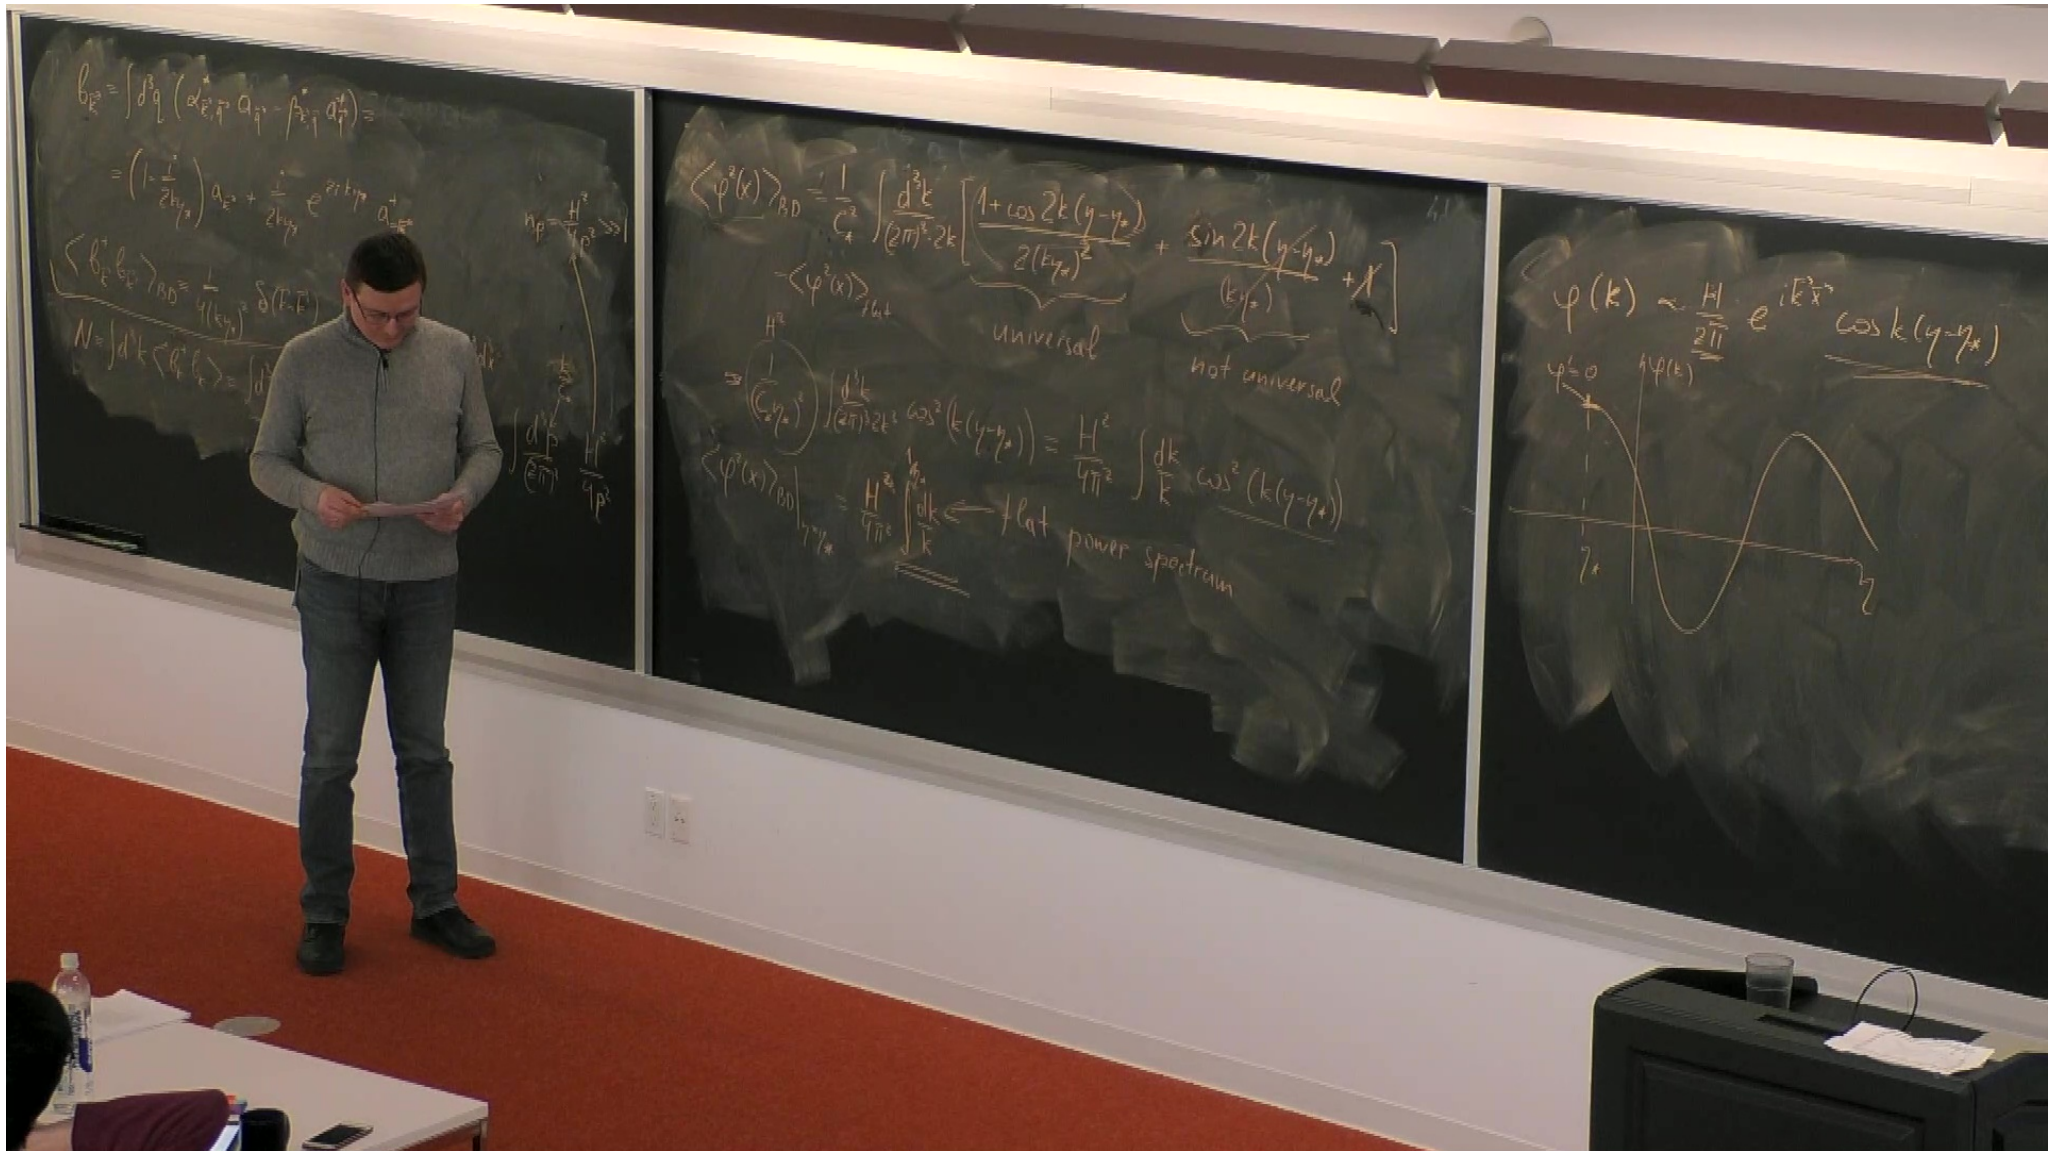 b_k⃗ = ∫d³q (α*_k⃗,q⃗ a_q⃗ − β*_k⃗,q⃗ a⁺_q⃗) =
= (1 − i/2kη*) a_k⃗ + i/2kη* e^{2ikη*} a⁺_−k⃗
n_p = H²/4p² >>> 1
⟨b⁺_k⃗ b_k⃗'⟩_BD = 1/4(kη*)² δ(k⃗−k⃗')
N = ∫d³k ⟨b⁺_k⃗ b_k⃗⟩ = ∫d³
∫ d³p/(2π)³ H²/4p²
⟨φ²(x)⟩_BD = 1/C*² ∫ d³k/(2π)³·2k [ (1+cos2k(η−η*))/2(kη*)² + sin2k(η−η*)/(kη*) + 1 ]
− ⟨φ²(x)⟩_flat
universal
not universal
H²
≈ 1/(C*η*)² ∫ d³k/(2π)³2k³ cos²(k(η−η*)) = H²/4π² ∫ dk/k cos²(k(η−η*))
⟨φ²(x)⟩_BD|_η=η* = H²/4π² ∫^{1/η*} dk/k ⇐ flat power spectrum
φ(k) ∝ H/2π e^{ik⃗x⃗} cos k(η−η*)
φ'=0
φ(k)
η*
η